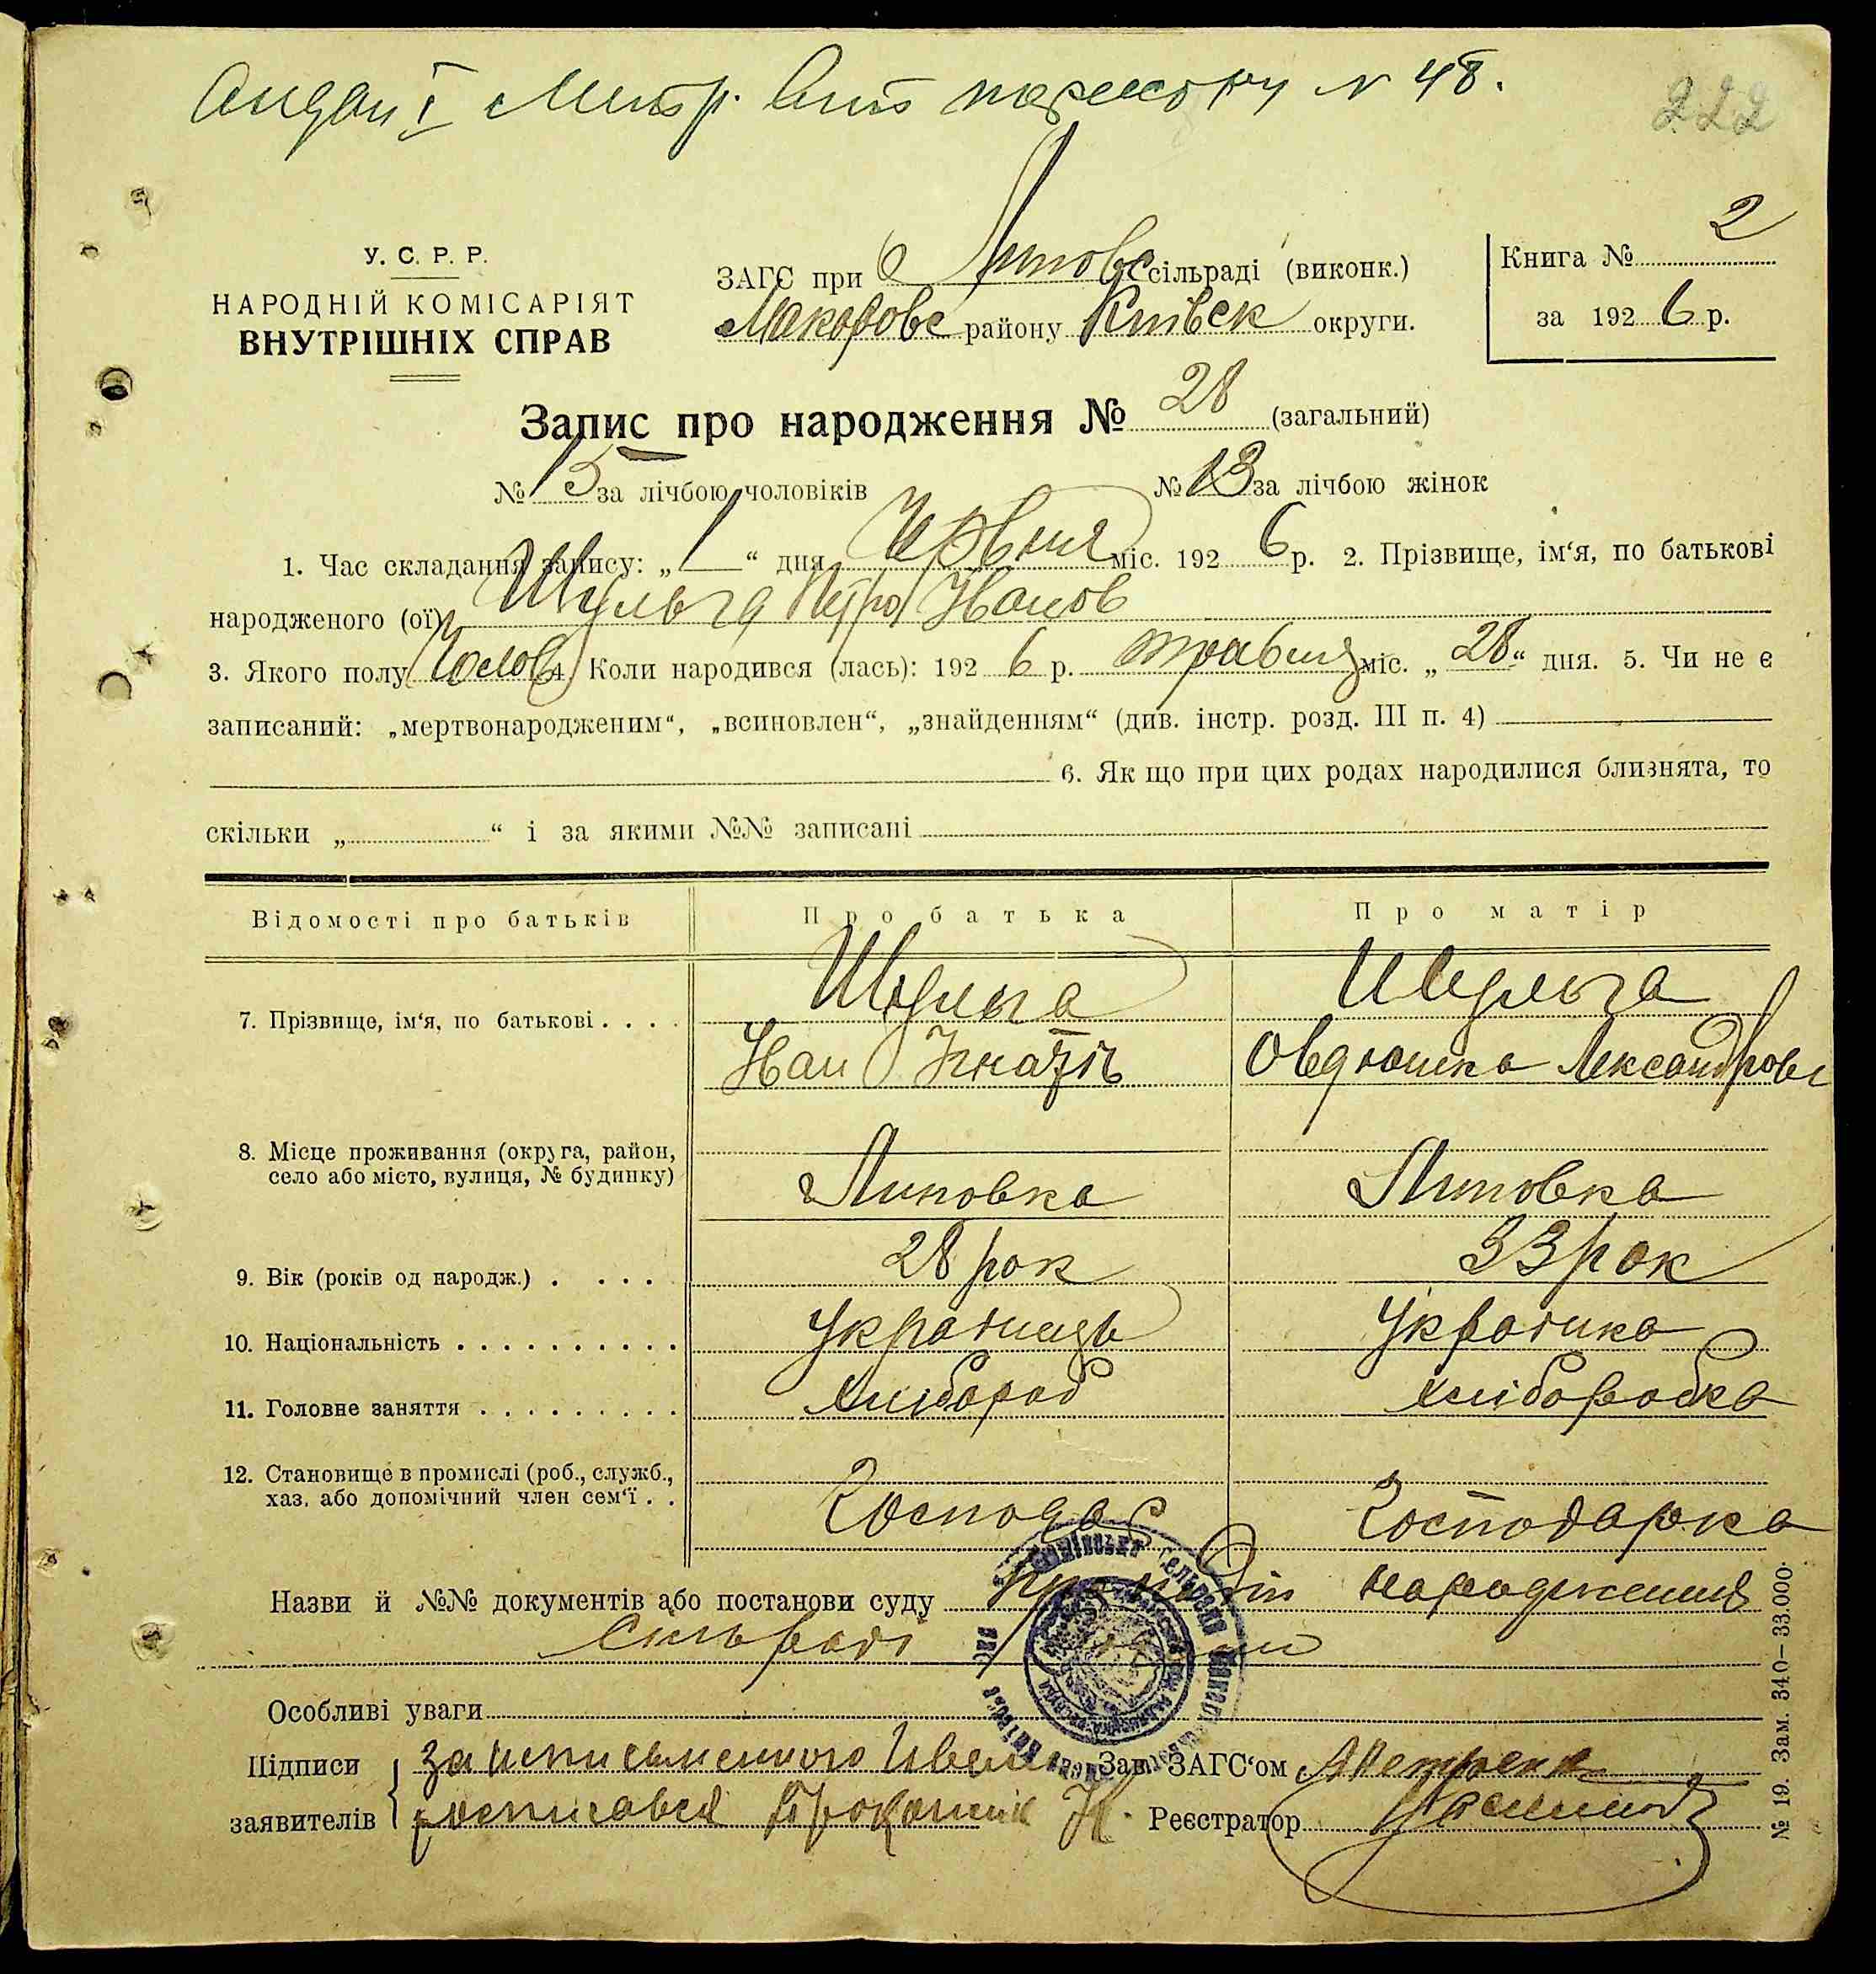 N 48.
222
У. С. Р. Р.
НАРОДНІЙ КОМІСАРІЯТ
ВНУТРІШНІХ СПРАВ
ЗАГС при Липовс сільраді (виконк.)
Макоровс району Київск округи.
Книга № 2
за 1926 р.
Запис про народження № 28 (загальний)
№ 15 за лічбою чоловіків № 13 за лічбою жінок
1. Час складання запису: „1“ дня Червня міс. 1926 р. 2. Прізвище, ім‘я, по батькові
народженого (ої) Шульга Петро Иванов
3. Якого полу Чолов 4. Коли народився (лась): 1926 р. травня міс. „28“ дня. 5. Чи не є
записаний: „мертвонародженим“, „всиновлен“, „знайденням“ (див. інстр. розд. III п. 4)
6. Як що при цих родах народилися близнята, то
скільки „ “ і за якими №№ записані
Відомості про батьків Про батька Про матір
7. Прізвище, ім‘я, по батькові . . . . Шульга Шульга
Иван Игнатів Овдюшка Александровс
8. Місце проживання (округа, район,
село або місто, вулиця, № будинку) Липовка Липовка
9. Вік (років од народж.) . . . . 28 рок 33 рок
10. Національність . . . . . . . . . . Українець Українка
11. Головне заняття . . . . . . . . . хлибороб хлібородка
12. Становище в промислі (роб., служб.,
хаз. або допомічний член сем‘ї . . Господар Господарка
Назви й №№ документів або постанови суду народження
Сильради
Особливі уваги
Підписи за неписьменного Зав. ЗАГС‘ом Петренк
заявителів росписався Реєстратор
№ 19. Зам. 340—33.000.